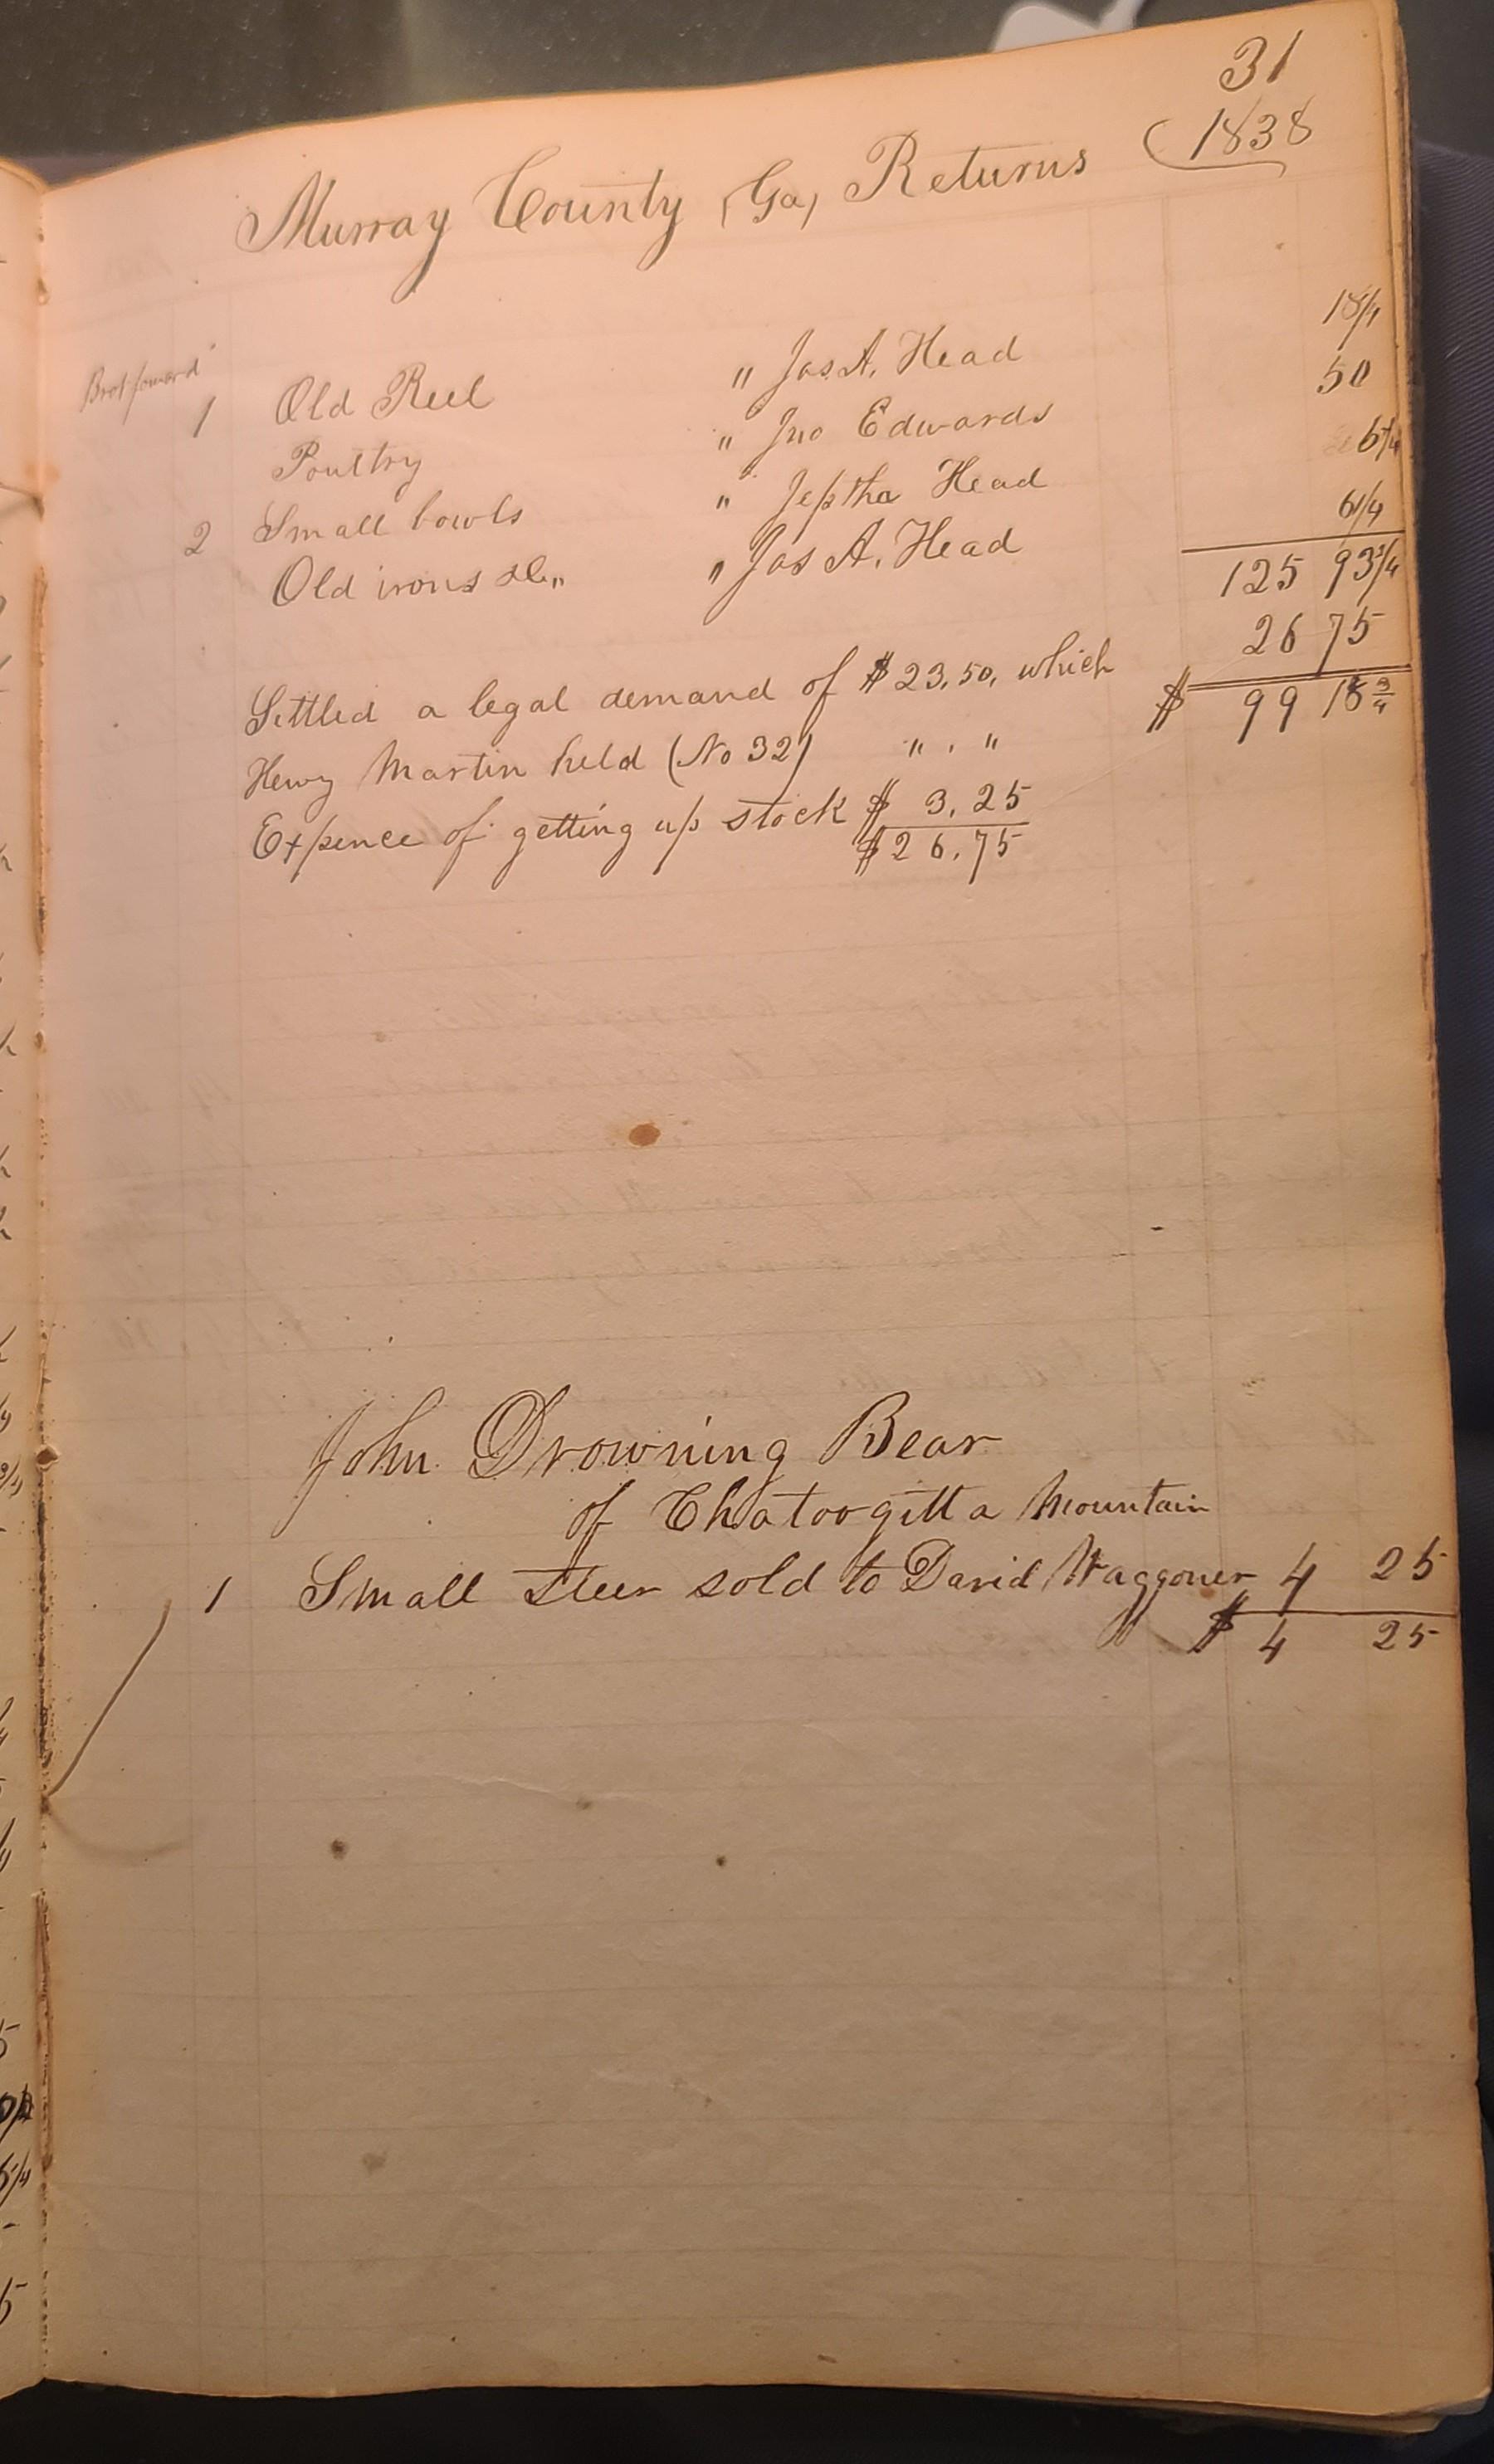 31
Murray County, Ga, Returns (1838
Brot forward
1 Old Reel " Jas. A. Head 18/4
Poultry " Jno Edwards 50
2 Small bowls " Jeptha Head 6 1/4
Old irons &c " Jas A. Head 6 1/4
125 93 3/4
Settled a legal demand of $23,50, which 26 75
Henry Martin held (No 32) " . " $ 99 18 3/4
Expence of getting up stock $ 3.25
$26.75
John Drowning Bear
of Chatoogitta Mountain
1 Small steer sold to David Waggoner 4 25
$ 4 25